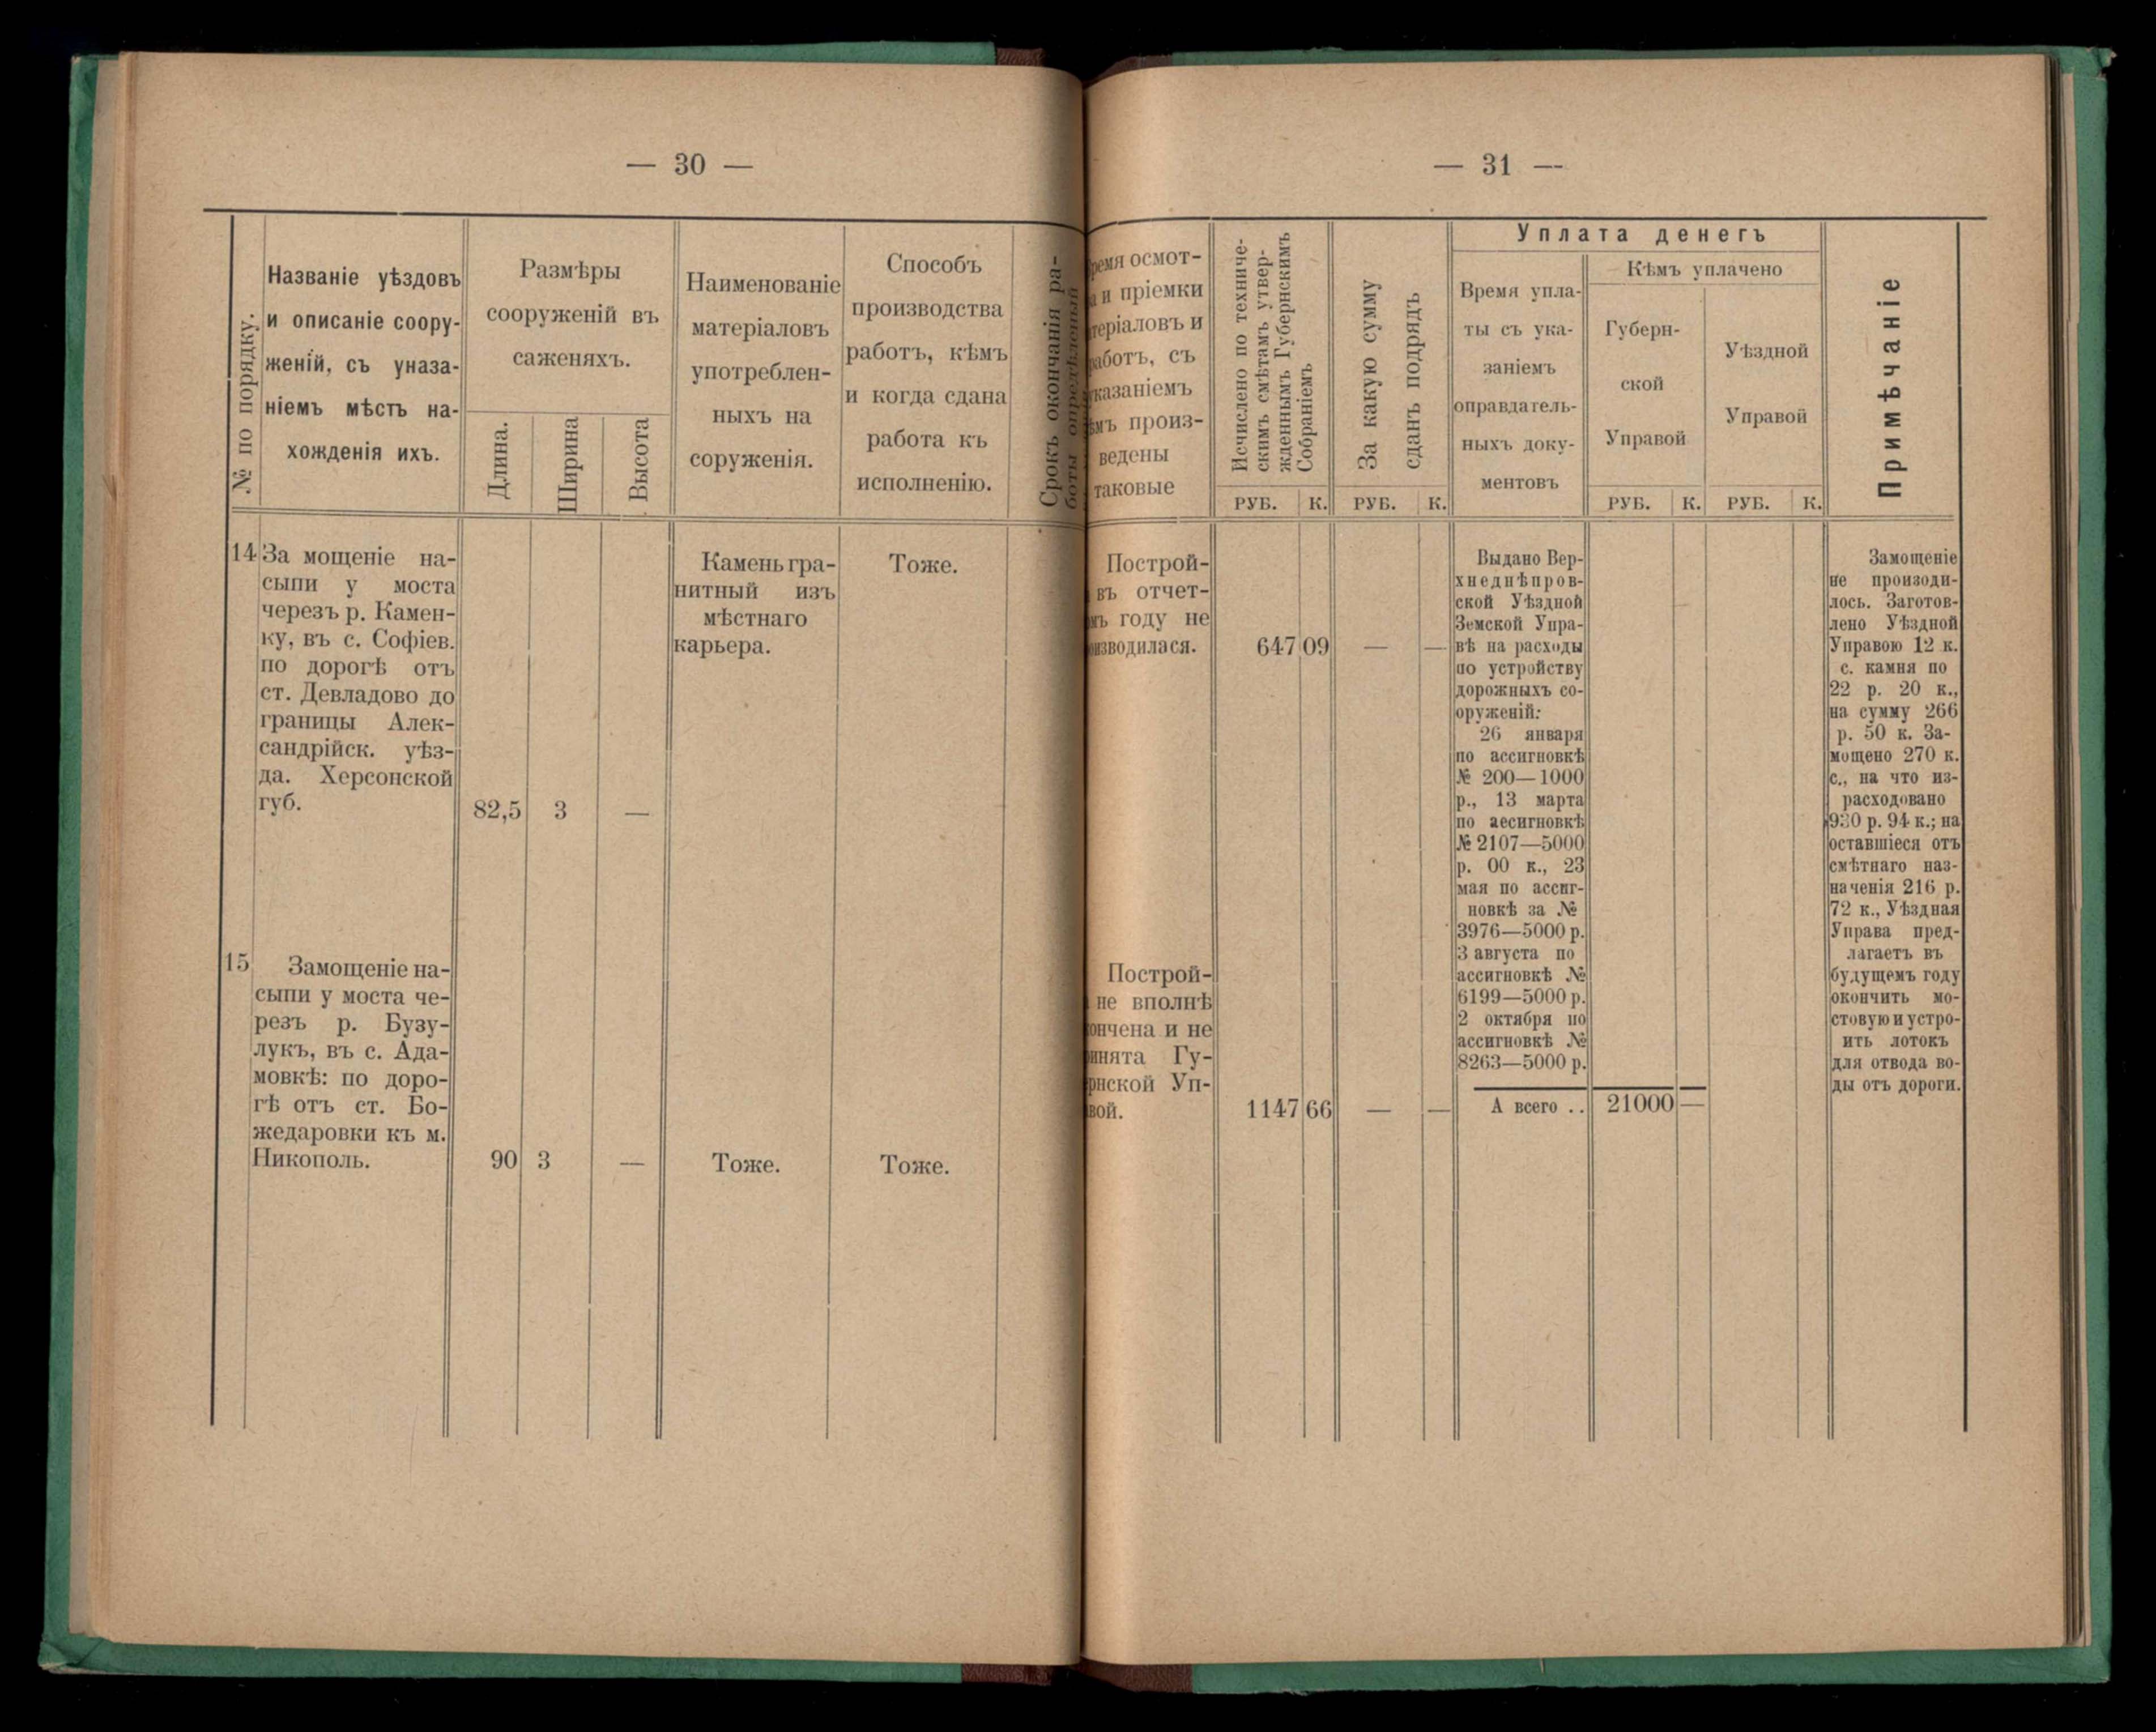 — 30 —
№ по порядку.
Названіе уѣздовъ
и описаніе соору-
женій, съ указа-
ніемъ мѣстъ на-
хожденія ихъ.
Размѣры
сооруженій въ
саженяхъ.
Длина.
Ширина
Высота
Наименованіе
матеріаловъ
употреблен-
ныхъ на
соруженія.
Способъ
производства
работъ, кѣмъ
и когда сдана
работа къ
исполненію.
Срокъ окончанія ра-
боты опредѣленный
14
За мощеніе на-
сыпи у моста
черезъ р. Камен-
ку, въ с. Софіев.
по дорогѣ отъ
ст. Девладово до
границы Алек-
сандрійск. уѣз-
да. Херсонской
губ.
82,5 3 —
Камень гра-
нитный изъ
мѣстнаго
карьера.
Тоже.
15
Замощеніе на-
сыпи у моста че-
резъ р. Бузу-
лукъ, въ с. Ада-
мовкѣ: по доро-
гѣ отъ ст. Бо-
жедаровки къ м.
Никополь.
90 3 —
Тоже.
Тоже.
— 31 —
осмот-
и пріемки
и
съ
произ-
ведены
таковые
Исчислено по техниче-
скимъ смѣтамъ утвер-
жденнымъ Губернскимъ
Собраніемъ
РУБ. К.
За какую сумму
сданъ подрядъ
РУБ. К.
Уплата денегъ
Время упла-
ты съ ука-
заніемъ
оправдатель-
ныхъ доку-
ментовъ
Кѣмъ уплачено
Губерн-
ской
Управой
РУБ. К.
Уѣздной
Управой
РУБ. К.
Примѣчаніе
Построй-
въ отчет-
году не
647 09 — —
Выдано Вер-
хнеднѣпров-
ской Уѣздной
Земской Упра-
вѣ на расходы
по устройству
дорожныхъ со-
оруженій:
26 января
по ассигновкѣ
№ 200—1000
р., 13 марта
по аесигновкѣ
№ 2107—5000
р. 00 к., 23
мая по ассиг-
новкѣ за №
3976—5000 р.
3 августа по
ассигновкѣ №
6199—5000 р.
2 октября по
ассигновкѣ №
8263—5000 р.
А всего .. 21000 —
Замощеніе
не произоди-
лось. Заготов-
лено Уѣздной
Управою 12 к.
с. камня по
22 р. 20 к.,
на сумму 266
р. 50 к. За-
мощено 270 к.
с., на что из-
расходовано
930 р. 94 к.; на
оставшіеся отъ
смѣтнаго наз-
наченія 216 р.
72 к., Уѣздная
Управа пред-
лагаетъ въ
будущемъ году
окончить мо-
стовую и устро-
ить лотокъ
для отвода во-
ды отъ дороги.
Построй-
не вполнѣ
и не
Гу-
Уп-
1147 66 — —